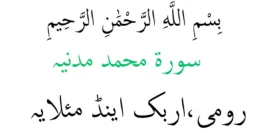 بِسْمِ اللَّهِ الرَّحْمَٰنِ الرَّحِيمِ
سورة محمد مدنیہ
رومی،اربک اینڈ مئلایہ